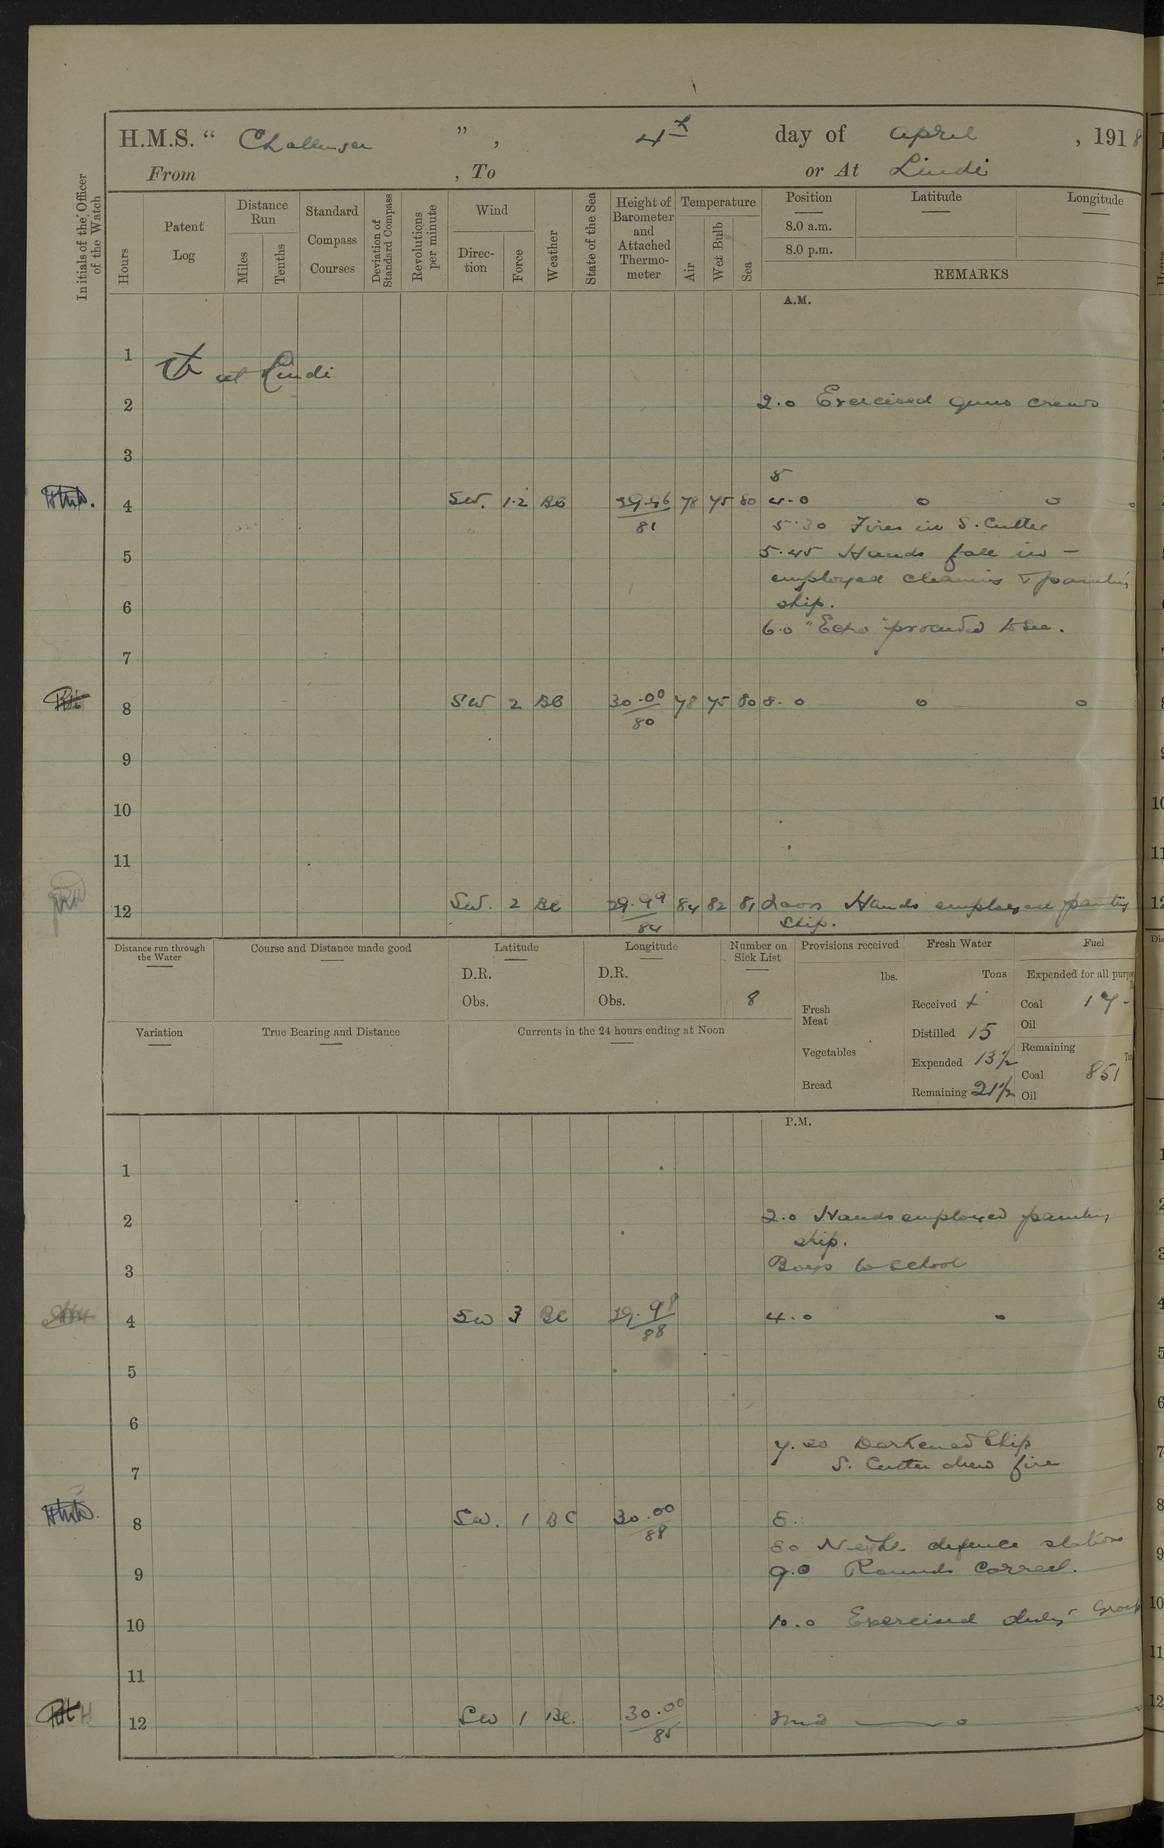 H.M.S. “ Challenger ” , 4th day of April , 1918
From , To or At Lindi
Initials of the Officer of the Watch
Hours
Patent Log
Distance Run
Miles
Tenths
Standard Compass Courses
Deviation of Standard Compass
Revolutions per minute
Wind
Direction
Force
Weather
State of the Sea
Height of Barometer and Attached Thermometer
Temperature
Air
Wet Bulb
Sea
Position Latitude Longitude
8.0 a.m.
8.0 p.m.
REMARKS
A.M.
1
at Lindi
2 2.0 Exercised guns crews
3
4 SW. 1.2 BC 29.96/81 78 75 80 4.0
5.30 Fires in S. Cutter
5 5.45 Hands fall in –
employed cleaning & painting
6 ship.
6.0 "Echo" proceeded to sea.
7
8 SW 2 BC 30.00/80 78 75 80 8.0
9
10
11
12 SW. 2 BC 29.99/84 84 82 81 Noon Hands employed painting
ship.
Distance run through the Water
Course and Distance made good
Latitude
D.R.
Obs.
Longitude
D.R.
Obs.
Number on Sick List
8
Provisions received
lbs.
Fresh Meat
Vegetables
Bread
Fresh Water
Tons
Received
Distilled 15
Expended 13½
Remaining 21½
Fuel
Expended for all purpo
Coal 17 -
Oil
Remaining
Coal 851
Oil
Variation
True Bearing and Distance
Currents in the 24 hours ending at Noon
P.M.
1
2 2.0 Hands employed painting
ship.
3 Boys to school
4 SW 3 BC 29.98/88 4.0
5
6
7.20 Darkened Ship
7 S. Cutter drew fire
8 SW. 1 BC 30.00/88 8.
8.0 defence stations
9 9.0 Rounds correct.
10 10.0 Exercised duty Group
11
12 SW 1 BC. 30.00/85 Mid